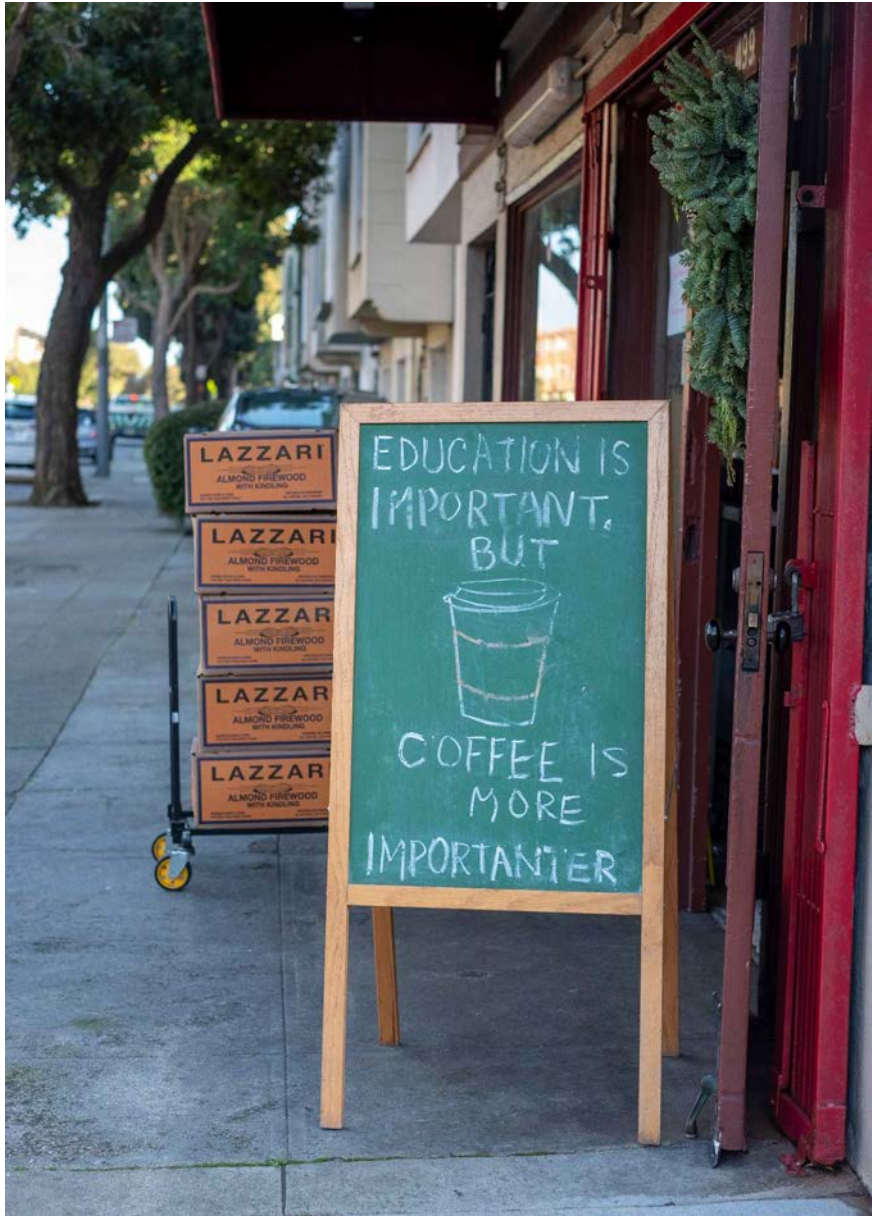 199
LAZZARI
ALMOND FIREWOOD
WITH KINDLING
LAZZARI
ALMOND FIREWOOD
WITH KINDLING
LAZZAR
ALMOND FIREWOOD
WITH KINDLING
LAZZAR
ALMOND FIREWOOD
WITH KINDLING
LAZZAR
ALMOND FIREWOOD
WITH KINDLING
EDUCATION IS
IMPORTANT,
BUT
COFFEE IS
MORE
IMPORTANTER